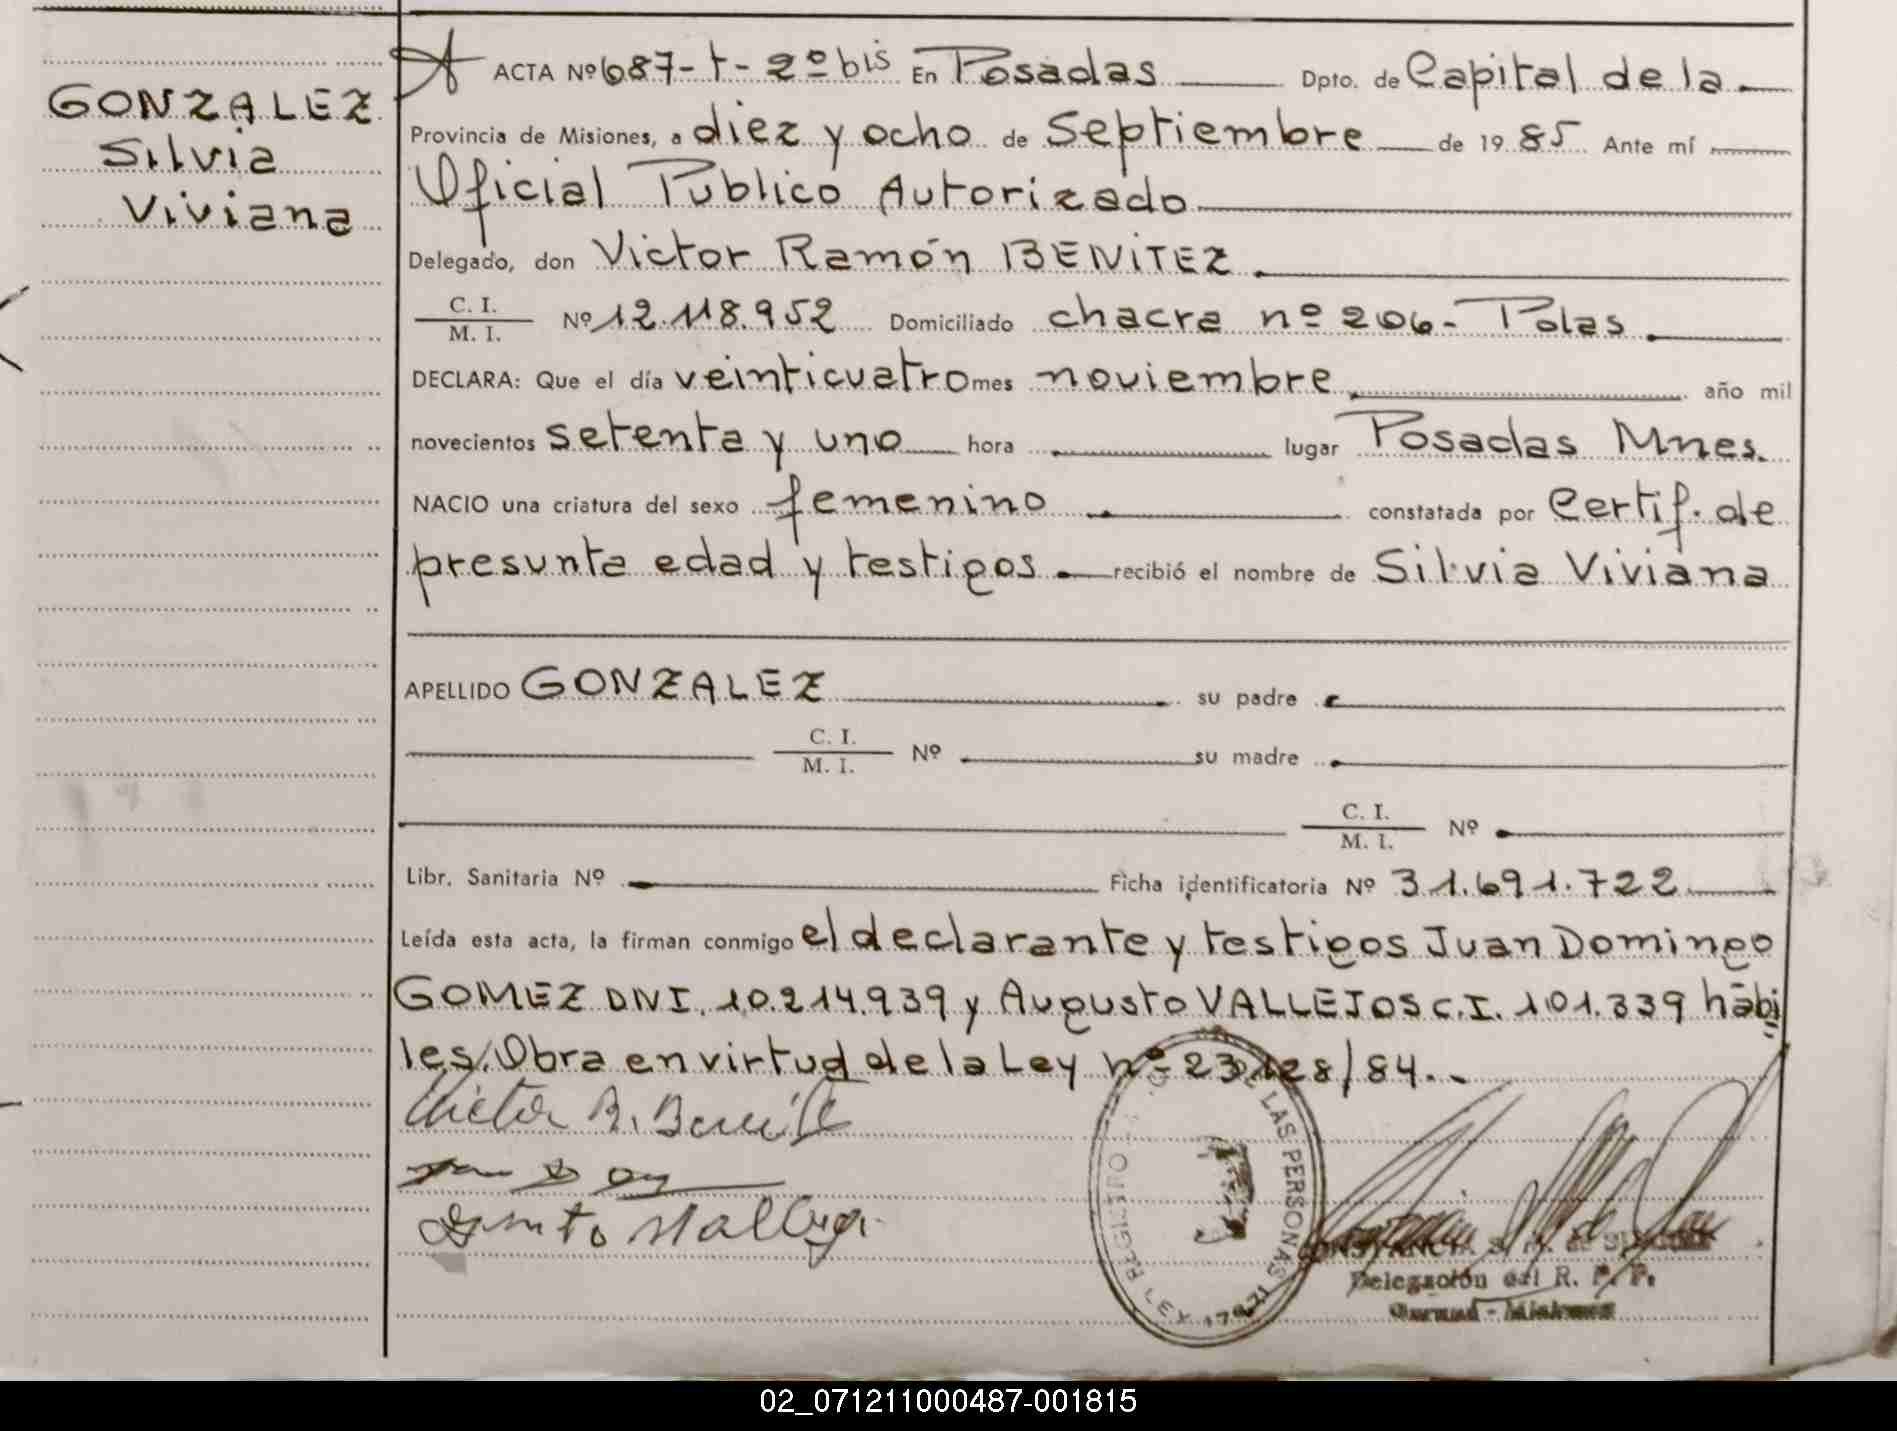 GONZALEZ
Silvia
Viviana
ACTA Nº 687-t-2º bis En Posadas Dpto. de Capital de la
Provincia de Misiones, a diez y ocho de Septiembre de 1985 Ante mí
Oficial Publico Autorizado
Delegado, don Victor Ramón BENITEZ
C. I.
M. I. Nº 12.118.952 Domiciliado chacra nº 206- Pdas
DECLARA: Que el día veinticuatro mes noviembre año mil
novecientos setenta y uno hora lugar Posadas Mnes.
NACIO una criatura del sexo femenino constatada por Certif. de
presunta edad y testigos recibió el nombre de Silvia Viviana
APELLIDO GONZALEZ su padre
C. I.
M. I. Nº su madre
C. I.
M. I. Nº
Libr. Sanitaria Nº Ficha identificatoria Nº 31.691.722
Leída esta acta, la firman conmigo el declarante y testigos Juan Domingo
GOMEZ DNI. 10.214.939 y Augusto VALLEJOS C.I. 101.339 hábi
les. Obra en virtud de la Ley nº 23128/84.-
Victor R. Benit
REGISTRO LAS PERSONAS LEY
Delegación del R. P. P.
Misiones
02_071211000487-001815